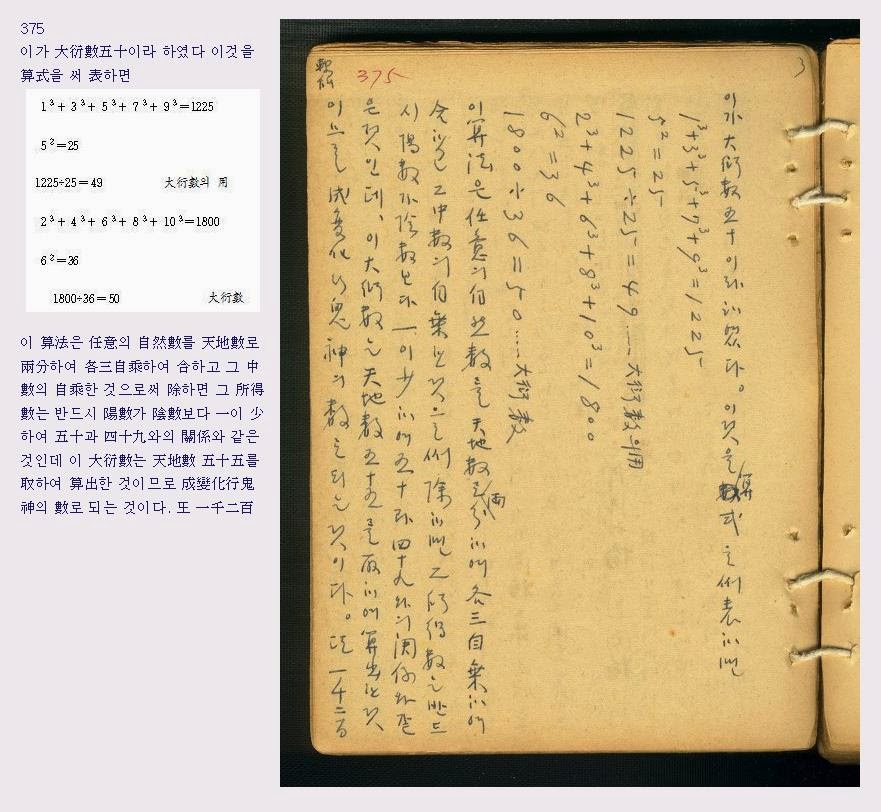 375
이가 大衍數五十이라 하였다 이것을
算式을 써 表하면
1³+ 3³+ 5³+ 7³+ 9³=1225
5²=25
1225÷25=49 大衍數의 用
2³+ 4³+ 6³+ 8³+ 10³=1800
6²=36
1800÷36=50 大衍數
이 算法은 任意의 自然數를 天地數로
兩分하여 各三自乘하여 合하고 그 中
數의 自乘한 것으로써 除하면 그 所得
數는 반드시 陽數가 陰數보다 一이 少
하여 五十과 四十九와의 關係와 같은
것인데 이 大衍數는 天地數 五十五를
取하여 算出한 것이므로 成變化行鬼
神의 數로 되는 것이다. 또 一千二百
3
375
이가 大衍數五十이라 하였다。이것을 算式으로써 表하면
1³+3³+5³+7³+9³=1225
5²=25
1225÷25=49……大衍數의用
2³+4³+6³+8³+10³=1800
6²=36
1800÷36=50……大衍數
이 算法은 任意의 自然數를 天地數로 兩分하여 各三自乘하여
合하고 그 中數의 自乘한 것으로써 除하면 그 所得數는 반드
시 陽數가 陰數보다 一이 少하여 五十과 四十九와의 関係와 같
은 것인데、이 大衍數는 天地數 五十五를 取하여 算出한 것
이므로 成變化行鬼神의 數로 되는 것이다。또 一千二百